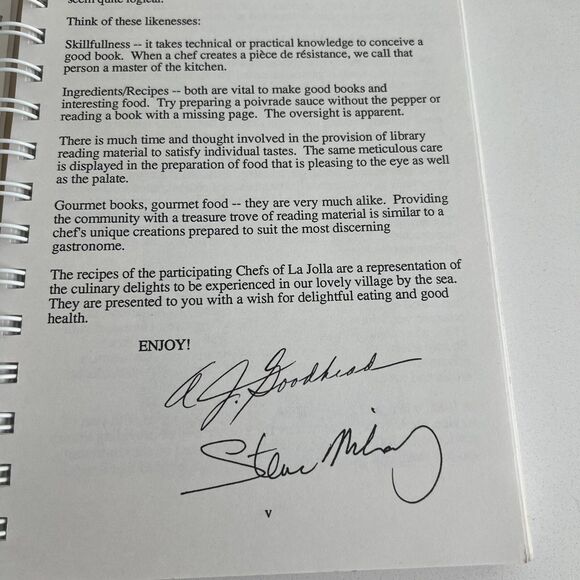 seem quite logical.
Think of these likenesses:
Skillfullness -- it takes technical or practical knowledge to conceive a
good book. When a chef creates a pièce de résistance, we call that
person a master of the kitchen.
Ingredients/Recipes -- both are vital to make good books and
interesting food. Try preparing a poivrade sauce without the pepper or
reading a book with a missing page. The oversight is apparent.
There is much time and thought involved in the provision of library
reading material to satisfy individual tastes. The same meticulous care
is displayed in the preparation of food that is pleasing to the eye as well
as the palate.
Gourmet books, gourmet food -- they are very much alike. Providing
the community with a treasure trove of reading material is similar to a
chef's unique creations prepared to suit the most discerning
gastronome.
The recipes of the participating Chefs of La Jolla are a representation of
the culinary delights to be experienced in our lovely village by the sea.
They are presented to you with a wish for delightful eating and good
health.
ENJOY!
A J. Goodhead
Steve
v